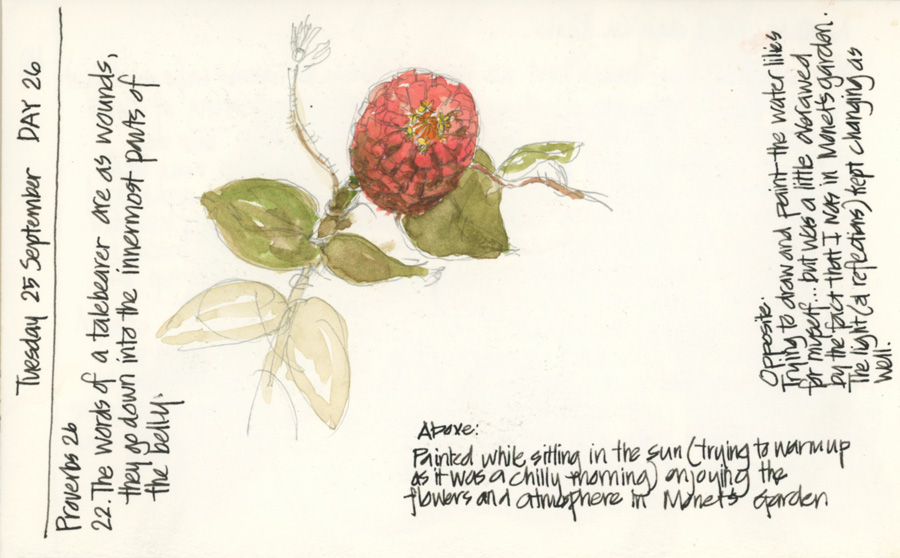 Tuesday 25 September DAY 26
Proverbs 26
22. The words of a talebearer are as wounds,
they go down into the innermost parts of
the belly.
Above:
Painted while sitting in the sun (trying to warm up
as it was a chilly morning) enjoying the
flowers and atmosphere in Monet's Garden
Opposite.
Trying to draw and paint the water lilies
for myself... but was a little overawed
by the fact that I was in Monet's garden.
The light (& reflections) kept changing as
well.